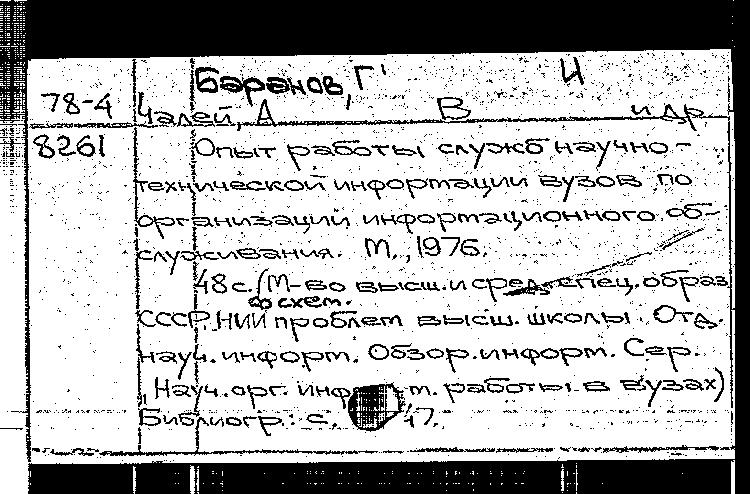 Баранов, Г И
78-4 Чалей, А В и др
8261 Опыт работы служб научно-
технической информации вузов по
организации информационного об-
служивания. М., 1976.
48 с. (М-во высш. и сред. спец. образ
со схем.
СССР. НИИ проблем высш. школы. Отд.
науч. информ. Обзор. информ. Сер.
Науч. орг. работы в вузах)
Библиогр.: с. 47.